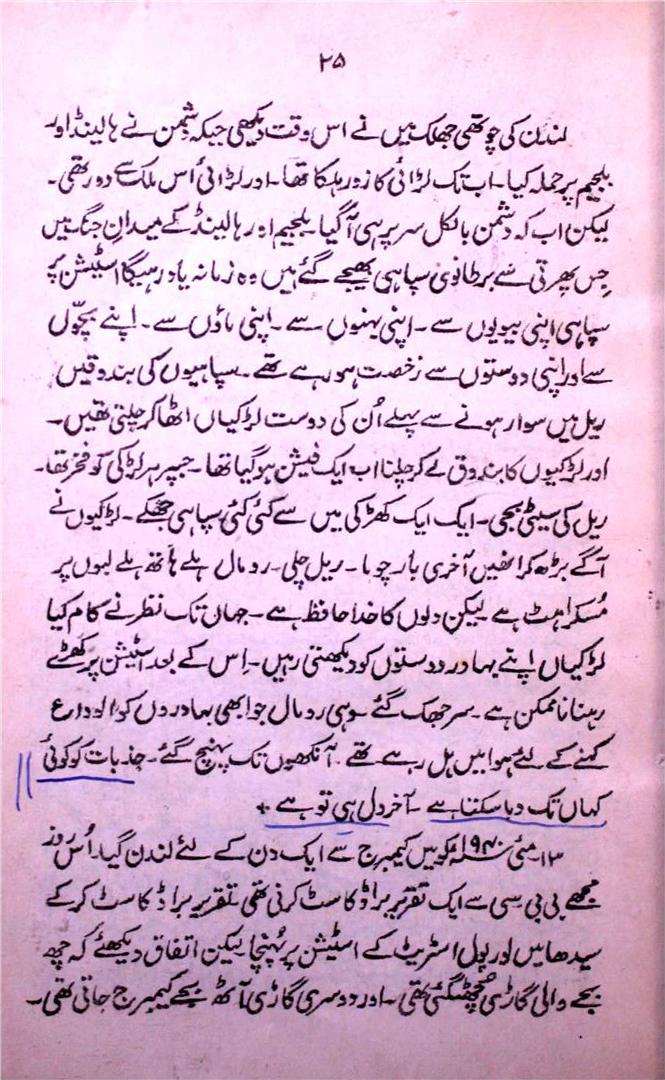 ۲۵
لندن کی چوتھی جھلک میں نے اس وقت دیکھی جبکہ دشمن نے ہالینڈ اور
بلجیم پر حملہ کیا۔ اب تک لڑائی کا زور ہلکا تھا۔ اور لڑائی اُس ملک سے دور تھی۔
لیکن اب کہ دشمن بالکل سر پر ہی آ گیا۔ بلجیم اور ہالینڈ کے میدانِ جنگ میں
جس پھرتی سے برطانوی سپاہی بھیجے گئے ہیں وہ زمانہ یاد رہیگا اسٹیشن پر
سپاہی اپنی بیویوں سے۔ اپنی بہنوں سے۔ اپنی ماؤں سے۔ اپنے بچّوں
سے اور اپنی دوستوں سے رخصت ہو رہے تھے۔ سپاہیوں کی بندوقیں
ریل میں سوار ہونے سے پہلے اُن کی دوست لڑکیاں اٹھا کر چلتی تھیں۔
اور لڑکیوں کا بندوق لے کر چلنا اب ایک فیشن ہو گیا تھا۔ جسپر ہر لڑکی کو فخر تھا۔
ریل کی سیٹی بجی۔ ایک ایک کھڑکی میں سے کئی کئی سپاہی جھکے۔ لڑکیوں نے
آگے بڑھ کر انھیں آخری بار چوما۔ ریل چلی۔ رومال ہلے ہاتھ ہلے لبوں پر
مُسکراہٹ ہے لیکن دلوں کا خدا حافظ ہے۔ جہاں تک نظر نے کام کیا
لڑکیاں اپنے بہادر دوستوں کو دیکھتی رہیں۔ اِس کے بعد اسٹیشن پر کھڑے
رہنا ناممکن ہے۔ سر جھک گئے۔ وہی رومال جو ابھی بہادروں کو الوداع
کہنے کے لئے ہوا میں ہل رہے تھے۔ آنکھوں تک پہنچ گئے۔ جذبات کو کوئی
کہاں تک دبا سکتا ہے۔ آخر دل ہی تو ہے +
۱۳۔ مئی ۱۹۴۰ء کو میں کیمبرج سے ایک دن کے لئے لندن گیا۔ اُس روز
مجھے بی بی سی سے ایک تقریر براڈ کاسٹ کرنی تھی۔ تقریر براڈ کاسٹ کر کے
سیدھا میں لورپول اسٹریٹ کے اسٹیشن پر پُہنچا لیکن اتفاق دیکھئے کہ چھ
بجے والی گاڑی چُھٹ گئی تھی۔ اور دوسری گاڑی آٹھ بجے کیمبرج جاتی تھی۔